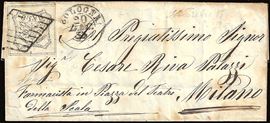 BOLOGNA
20
Pregiatissimo Signor
Sig. Cesare Riva Palazzi
Farmacista in Piazza del Teatro
della Scala
Milano